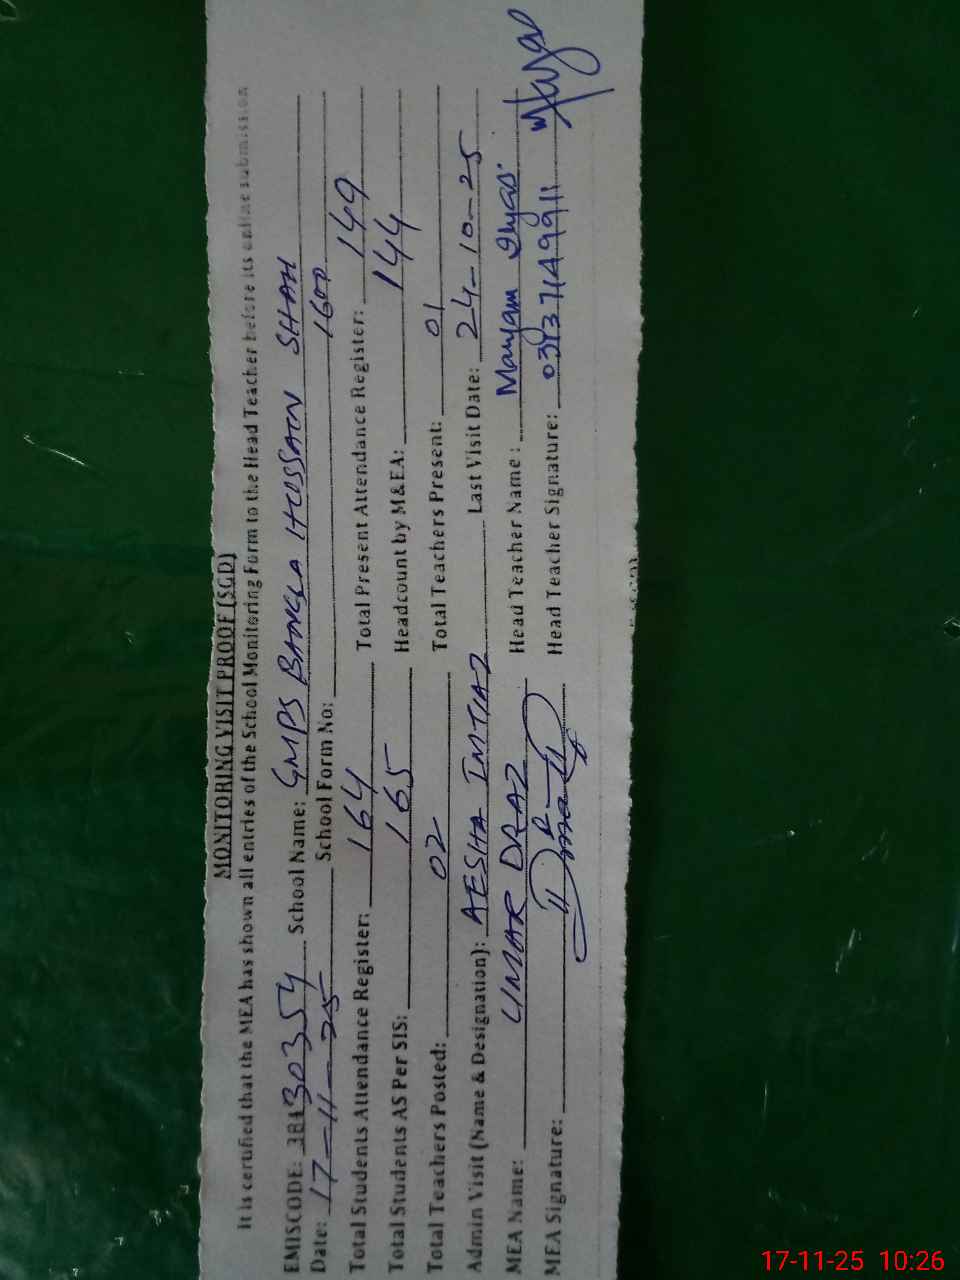 MONITORING VISIT PROOF (SGD)
It is certified that the MEA has shown all entries of the School Monitoring Form to the Head Teacher before its online submission
EMISCODE: 38430354 School Name: GMPS BANGLA HUSSAIN SHAH
Date: 17-11-25 School Form No: 1600
Total Students Attendance Register: 164 Total Present Attendance Register: 149
Total Students AS Per SIS: 165 Headcount by M&EA: 144
Total Teachers Posted: 02 Total Teachers Present: 01
Admin Visit (Name & Designation): AESHA IMTIAZ Last Visit Date: 24-10-25
MEA Name: UMAR DRAZ Head Teacher Name: Maryam Ilyas
MEA Signature: Head Teacher Signature:
17-11-25 10:26